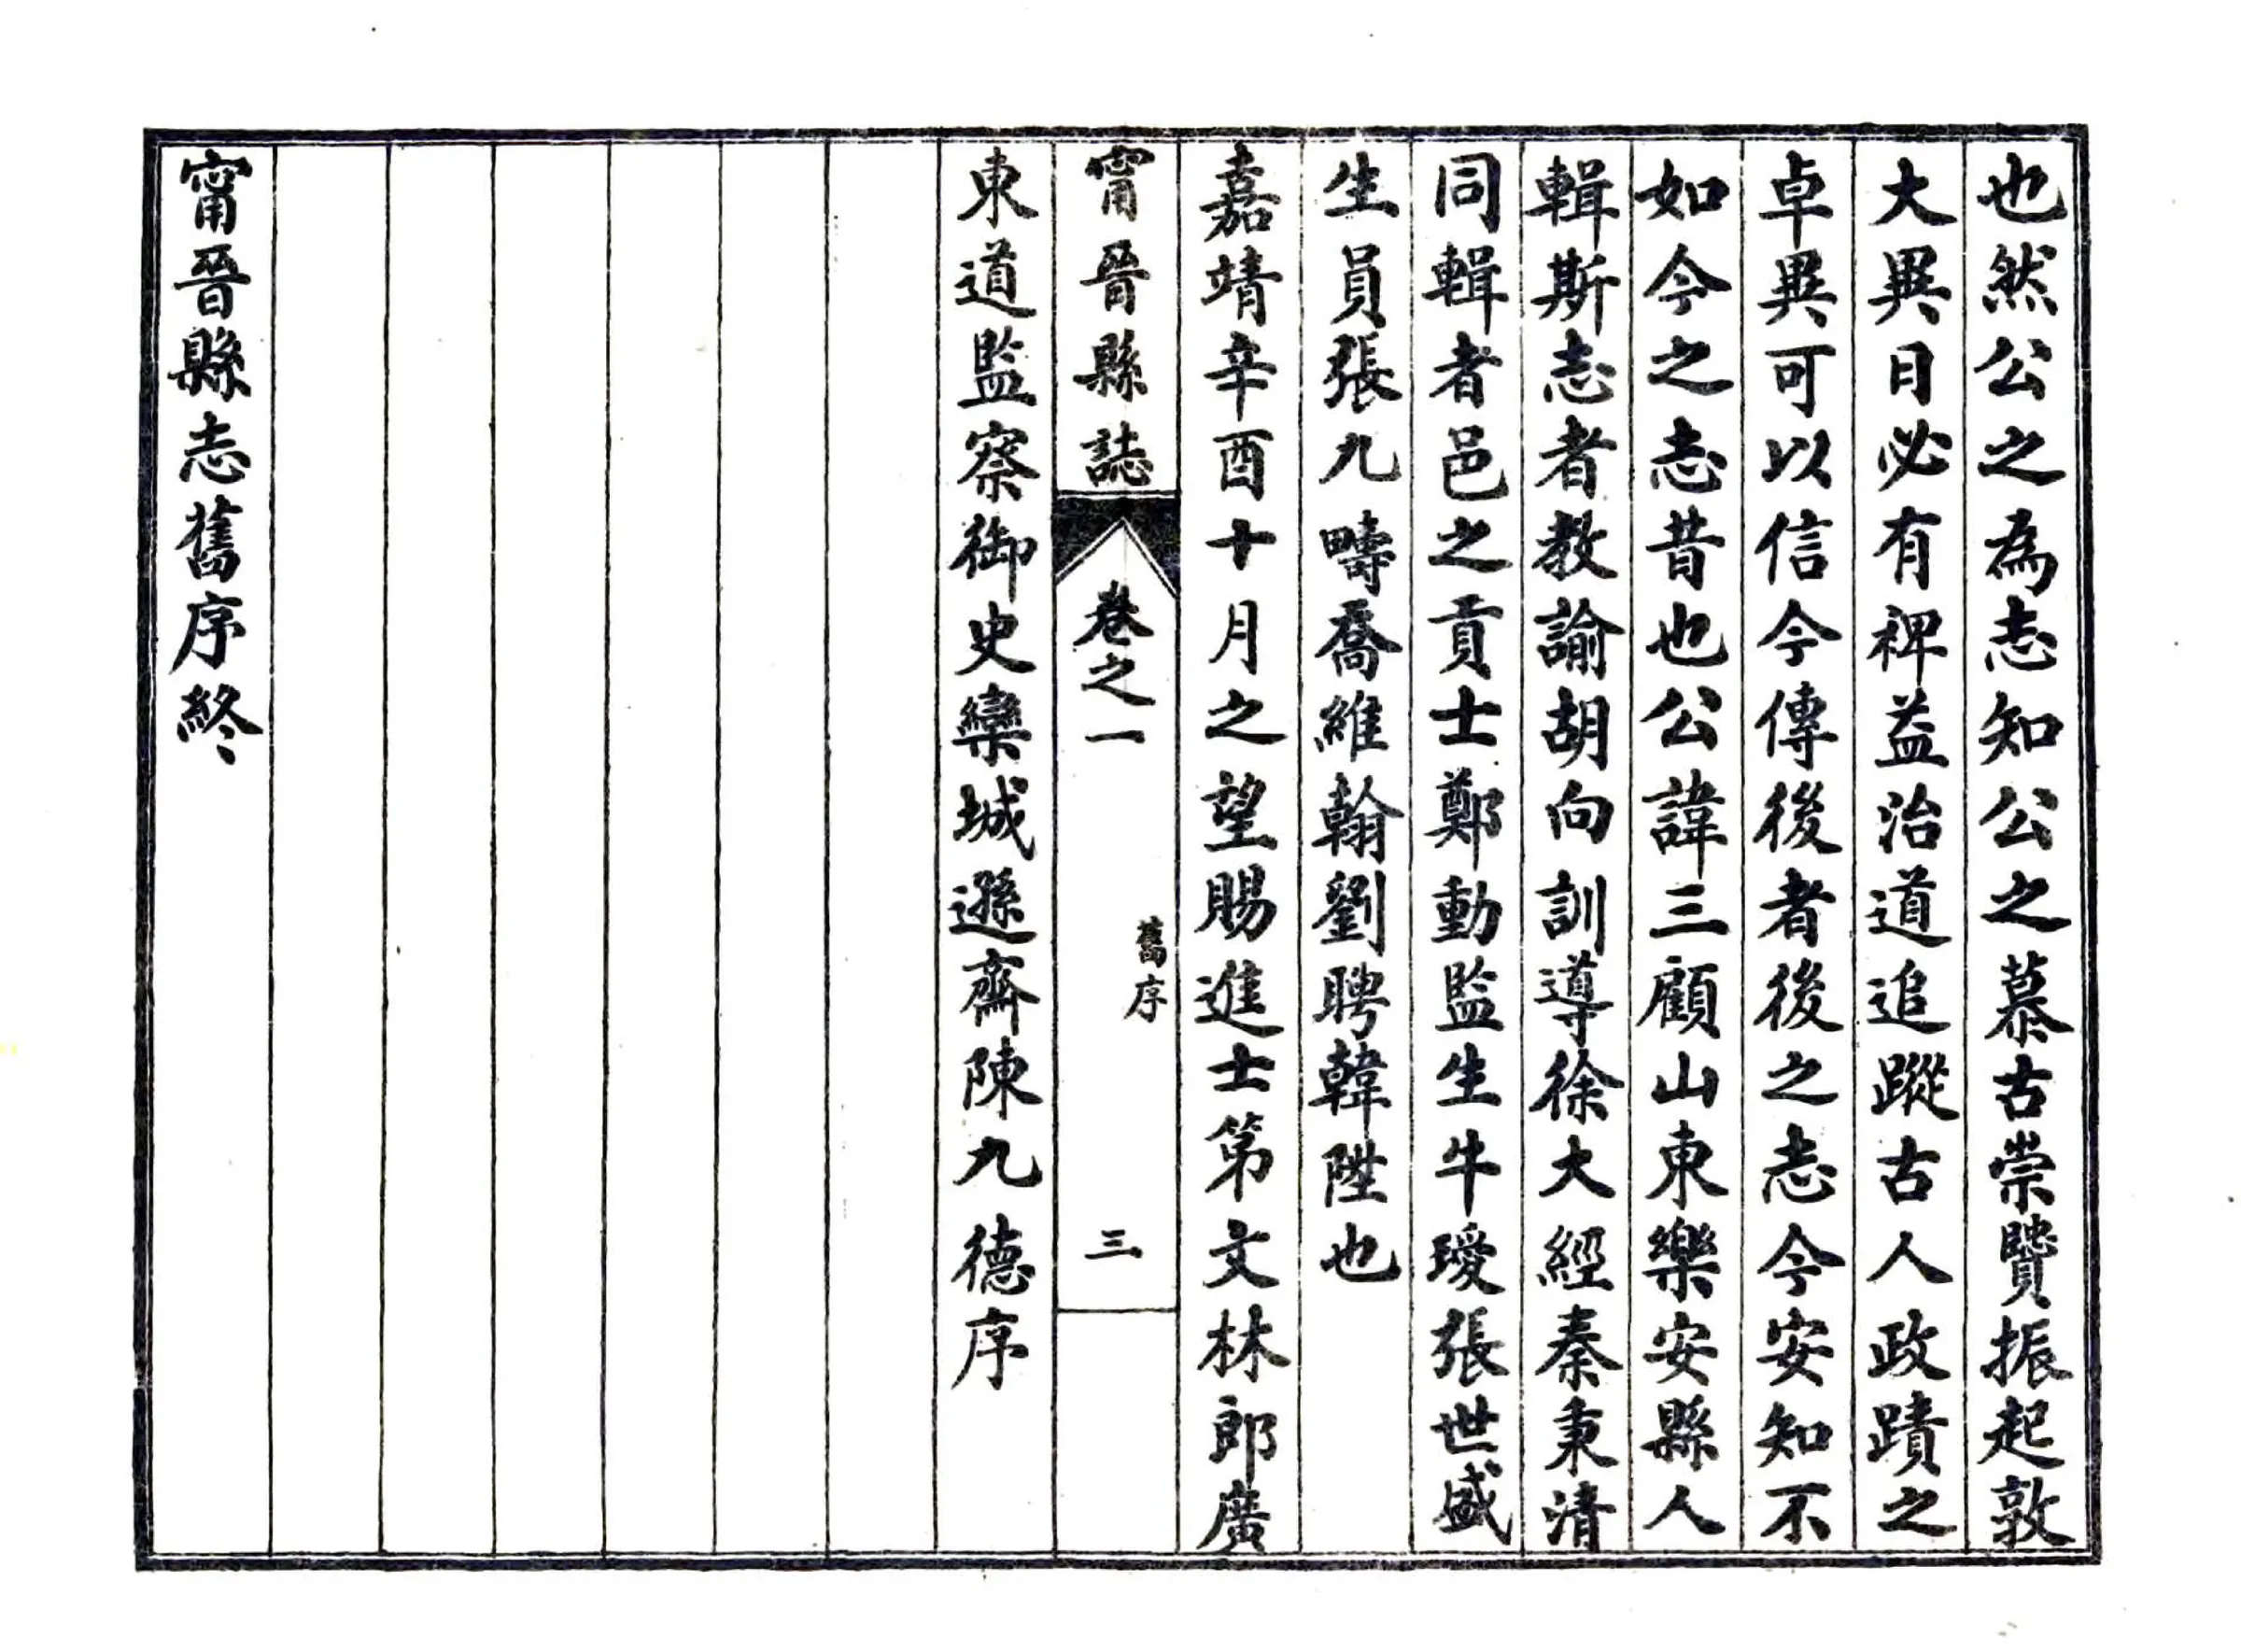 也然公之為志知公之慕古崇贒振起敦
大異日必有裨益治道追蹤古人政蹟之
卓異可以信今傳後者後之志今安知不
如今之志昔也公諱三顧山東樂安縣人
輯斯志者教諭胡向訓導徐大經秦秉清
同輯者邑之貢士鄭動監生牛瑷張世盛
生員張九疇喬維翰劉聘韓陞也
嘉靖辛酉十月之望賜進士第文林郎廣
甯晉縣誌
卷之一
舊序
三
東道監察御史欒城遜齋陳九德序
甯晉縣志舊序終